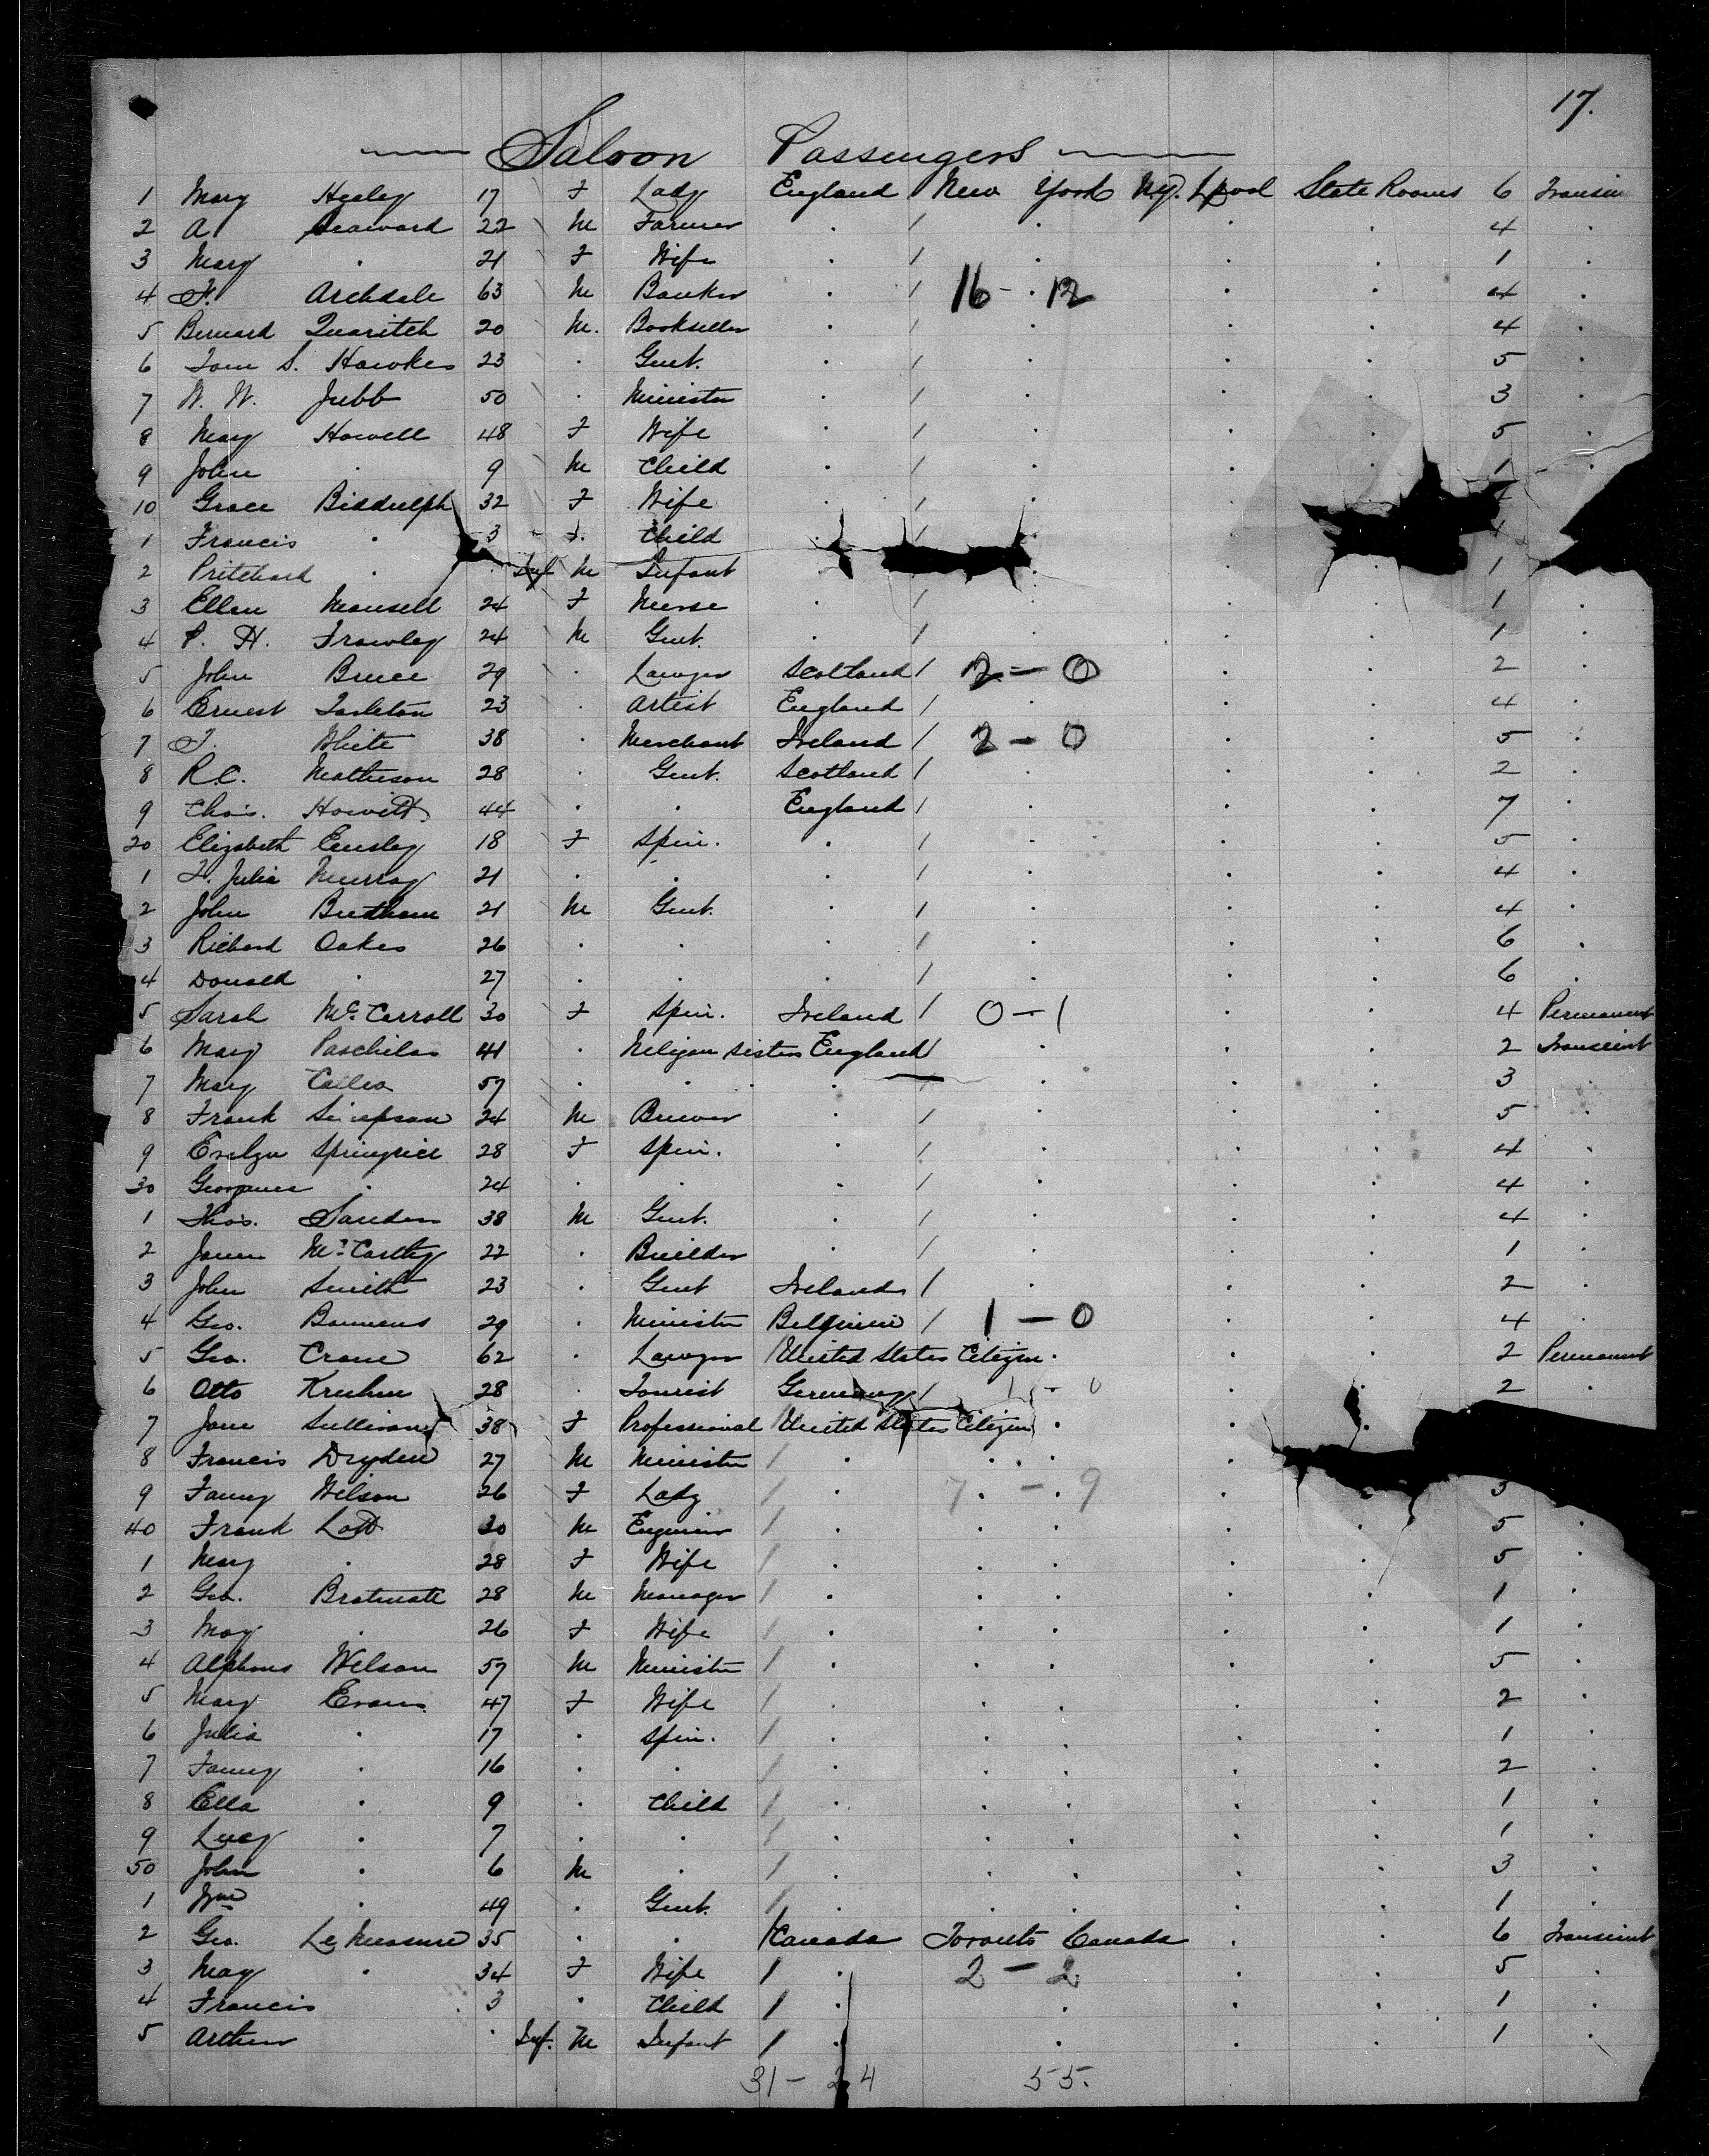 17.
Saloon Passengers
1 Mary Healey 17 F Lady England New York N.Y. Lpool State Rooms 6 Transien
2 A. Seaward 22 M Farmer . / . . . 4 .
3 Mary . 21 F Wife . / . . . 1 .
4 F. Archdale 63 M Banker . / 16 - 12 . . 4 .
5 Bernard Quaritch 20 M. Bookseller . / . . . 4 .
6 Tom S. Hawkes 23 . Gent. . / . . . 5 .
7 W. W. Jubb 50 . Minister . / . . . 3 .
8 Mary Howell 48 F Wife . / . . . 5 .
9 John . 9 M Child . / . . . 1
10 Grace Biddulph 32 F Wife . / .
1 Francis . 3 F. Child /
2 Pritchard . . Inf M Infant . . . 1
3 Ellen Mansell 24 F Nurse . / . . . 1 .
4 P. H. Frawley 24 M Gent. . / . . . 1 .
5 John Bruce 29 . Lawyer Scotland / 2 - 0 . . 2 .
6 Ernest Tarleton 23 . Artist England / . . . 4 .
7 J. White 38 . Merchant Ireland / 2 - 0 . . 5 .
8 R.C. Matheson 28 . Gent. Scotland / . . . 2 .
9 Chas. Howitt 44 . . England / . . . 7 .
20 Elizabeth Emsley 18 F Spin. . / . . . 5 .
1 F. Julia Murray 21 . . . / . . . 4 .
2 John Beetham 21 M Gent. . / . . . 4 .
3 Richard Oakes 26 . . . / . . . 6 .
4 Donald . 27 . . . / . . . 6 .
5 Sarah McCarroll 30 F Spin. Ireland / 0 - 1 . . 4 Permanent
6 Mary 41 . Religion Sisters England / . . . 2 Transient
7 Mary 57 . . . / . . . 3 .
8 Frank Simpson 24 M Brewer . / . . . 5 .
9 Evelyn Springrice 28 F Spin. . / . . . 4 .
30 . 24 . . . / . . . 4 .
1 Thos. Sanders 38 M Gent. . / . . . 4 .
2 James McCarthy 22 . Builder . / . . . 1 .
3 John Smith 23 . Gent Ireland / . . 2 .
4 Geo. Baumans 29 . Minister Belgium / 1 - 0 . . 4 .
5 Geo. Crane 62 . Lawyer United States Citizen . . . 2 Permanent
6 Otto Kruhm 28 . Tourist Germany / 1 - 0 . . 2 .
7 Jane Sullivan 38 F Professional United States Citizen . . .
8 Francis Dryden 27 M Minister / . . . .
9 Fanny Wilson 26 F Lady / . 7 - 9 . . 3
40 Frank Lott 30 M Engineer / . . . . . 5 .
1 Mary . 28 F Wife / . . . . . 5 .
2 Geo. 28 M Manager / . . . . . 1 .
3 May . 26 F Wife / . . . . . 1 .
4 Alphons Wilson 57 M Minister / . . . . . 5 .
5 Mary Evans 47 F Wife / . . . . . 2 .
6 Julia . 17 . Spin. / . . . . . 1 .
7 Fanny . 16 . . / . . . . . 2 .
8 Ella . 9 . Child / . . . . . 1 .
9 Lucy . 7 . . / . . . . . 1 .
50 John . 6 M . / . . . . . 3 .
1 Wm . 49 . Gent. / . . . . . 1 .
2 Geo. Le Measure 35 . . Canada Toronto Canada . . 6 Transient
3 May . 34 F Wife / . 2 - 2 . . 5 .
4 Francis . 3 . Child / . . . . 1 .
5 Arthur . Inf. M Infant / . . . . 1 .
31 - 24 55.